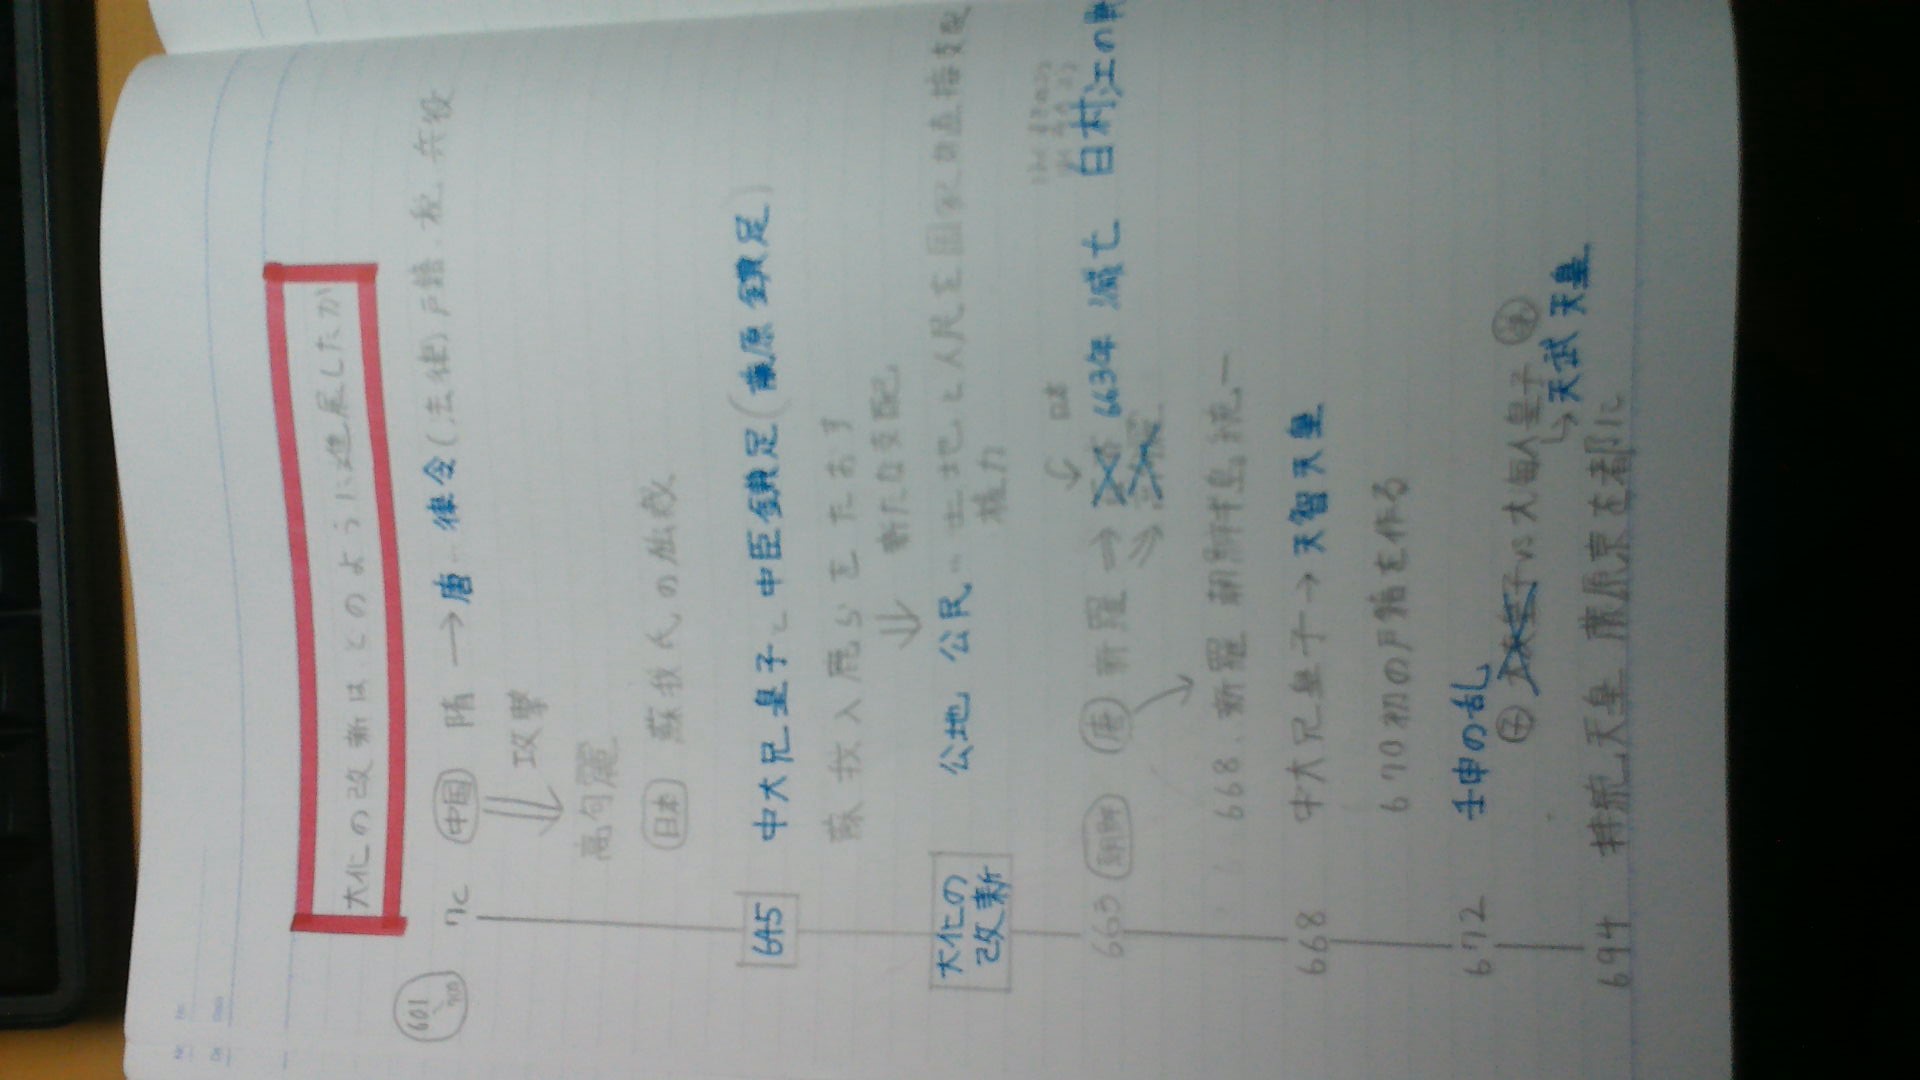 大化の改新はどのように進展したか
601 700
7C 中国 隋 → 唐 律令(法律) 戸籍・税・兵役
攻撃
高句麗
日本 蘇我氏の独裁
645 中大兄皇子と中臣鎌足(藤原鎌足)
蘇我入鹿らをたおす
新たな支配
大化の改新 公地 公民 … 土地と人民を国家が直接支配
権力
日本
663 朝鮮 唐 新羅 ⇒ 663年 滅亡 白村江の戦
668、新羅 朝鮮半島統一
668 中大兄皇子 → 天智天皇
670初の戸籍を作る
672 壬申の乱
子 vs 大海人皇子
→天武天皇
694 持統天皇 藤原京を都に